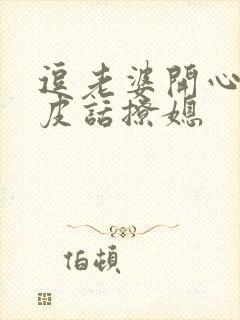 逗老婆開心
皮話撩媳
伯頓